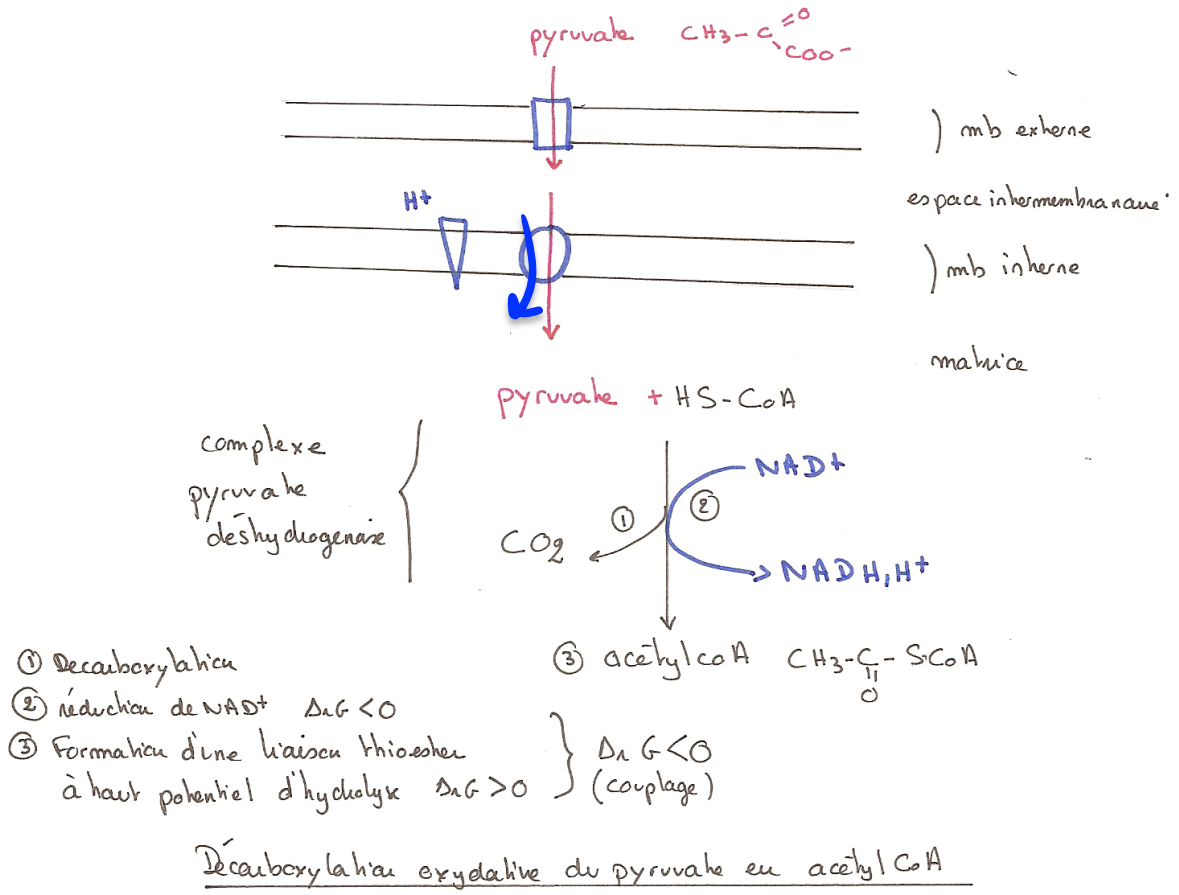 pyruvate CH3-C=O
COO-
) mb externe
H+
espace intermembranaire
) mb interne
matrice
pyruvate + HS-CoA
complexe
pyruvate
déshydrogénase
NAD+
① ②
CO2
NADH,H+
① Décarboxylation
③ acétylcoA CH3-C-S-CoA
O
② réduction de NAD+ ΔrG<0
③ Formation d'une liaison thioester
à haut potentiel d'hydrolyse ΔrG>0
ΔrG<0
(couplage)
Décarboxylation oxydative du pyruvate en acétyl CoA